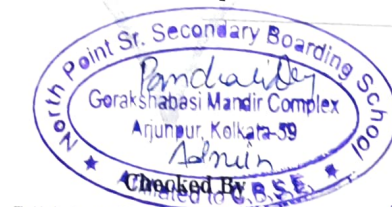 North Point Sr. Secondary Boarding School
Panchali Dey
Gorakshabasi Mandir Complex
Arjunpur, Kolkata-59
Admin
Checked By
Affiliated to C.B.S.E.